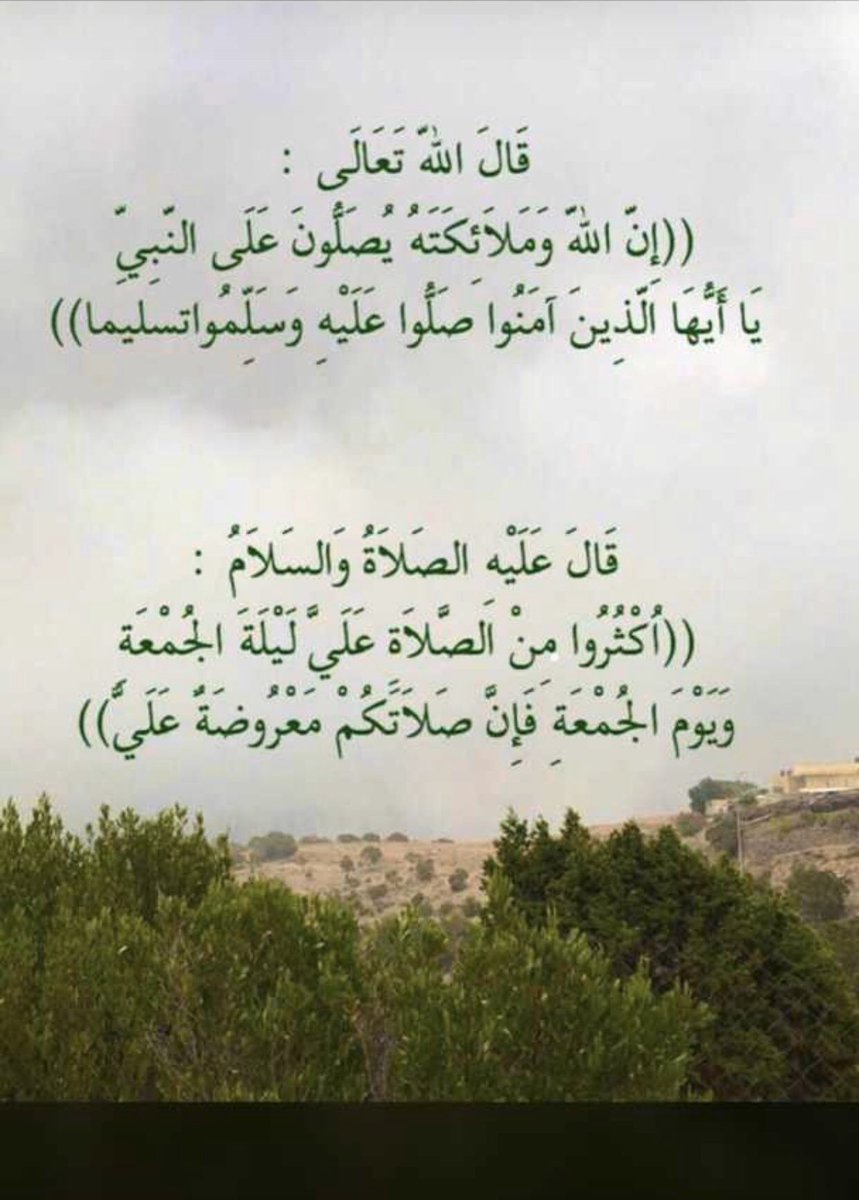 قَالَ اللهُّ تَعَالَى :
((إِنّ اللهّ وَمَلاَئِكَتَهُ يُصَلُّونَ عَلَى النّبِيِّ
يَا أَيُّهَا الّذِينَ آمَنُوا صَلُّوا عَلَيْهِ وَسَلِّمُواتسليما))
قَالَ عَلَيْهِ الصَلاَةُ وَالسَلاَمُ :
((اُكْثُرُوا مِنْ الصَّلاَةِ عَلَيَّ لَيْلَةَ الجُمْعَةِ
وَيَوْمَ الجُمْعَةِ فَإِنَّ صَلاَتَكُمْ مَعْرُوضَةٌ عَلَيَّ))